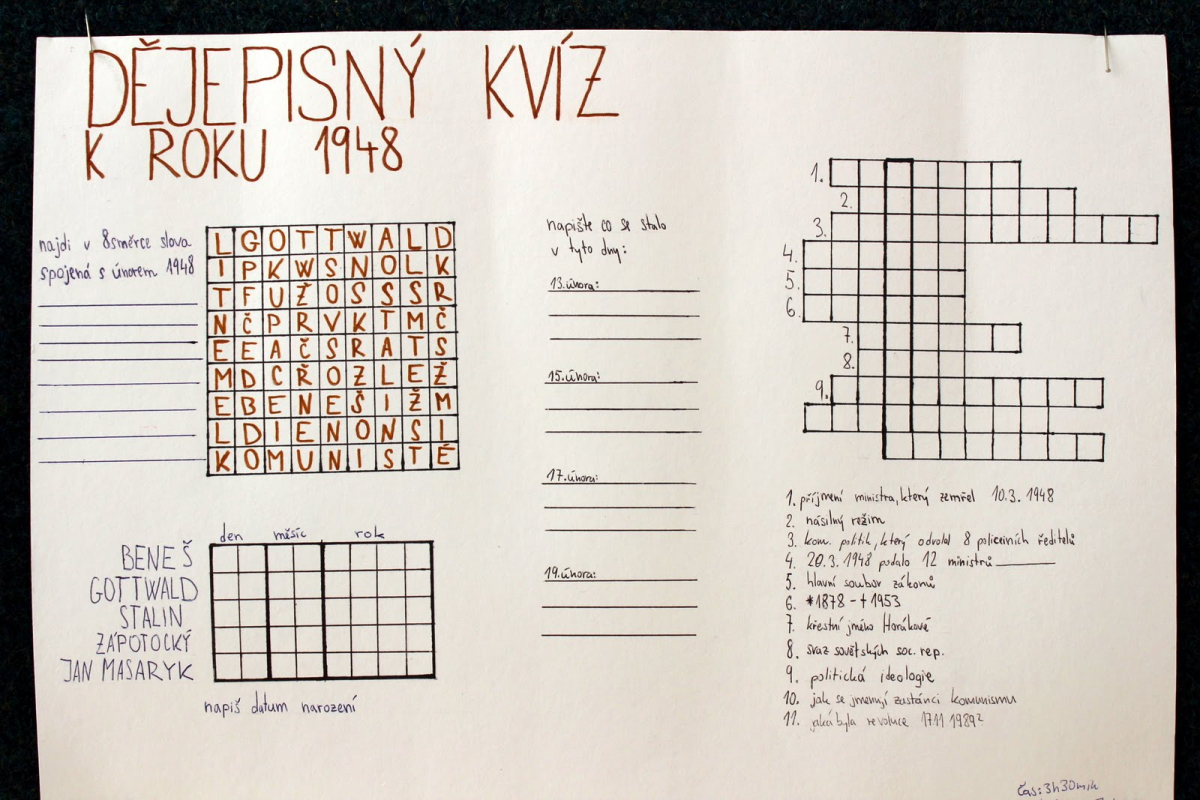 DĚJEPISNÝ KVÍZ
K ROKU 1948
najdi v 8směrce slova
spojená s únorem 1948
L G O T T W A L D
I P K W S N O L K
T F U Ž O S S S R
N Č P R V K T M Č
E E A Č S R A T S
M D C Ř O Z L E Ž
E B E N E Š I Ž M
L D I E N O N S I
K O M U N I S T É
den měsíc rok
BENEŠ
GOTTWALD
STALIN
ZÁPOTOCKÝ
JAN MASARYK
napiš datum narození
napište co se stalo
v tyto dny:
13.února:
15.února:
17.února:
19.února:
1.
2.
3.
4.
5.
6.
7.
8.
9.
1. příjmení ministra, který zemřel 10.3. 1948
2. násilný režim
3. kom. politik, který odvolal 8 policejních ředitelů
4. 20.3. 1948 podalo 12 ministrů
5. hlavní soubor zákonů
6. *1878 - †1953
7. křestní jméno Horákové
8. svaz sovětských soc. rep.
9. politická ideologie
10. jak se jmenují zastánci komunismu
11. jaká byla revoluce 17.11 1989?
čas: 3h30min